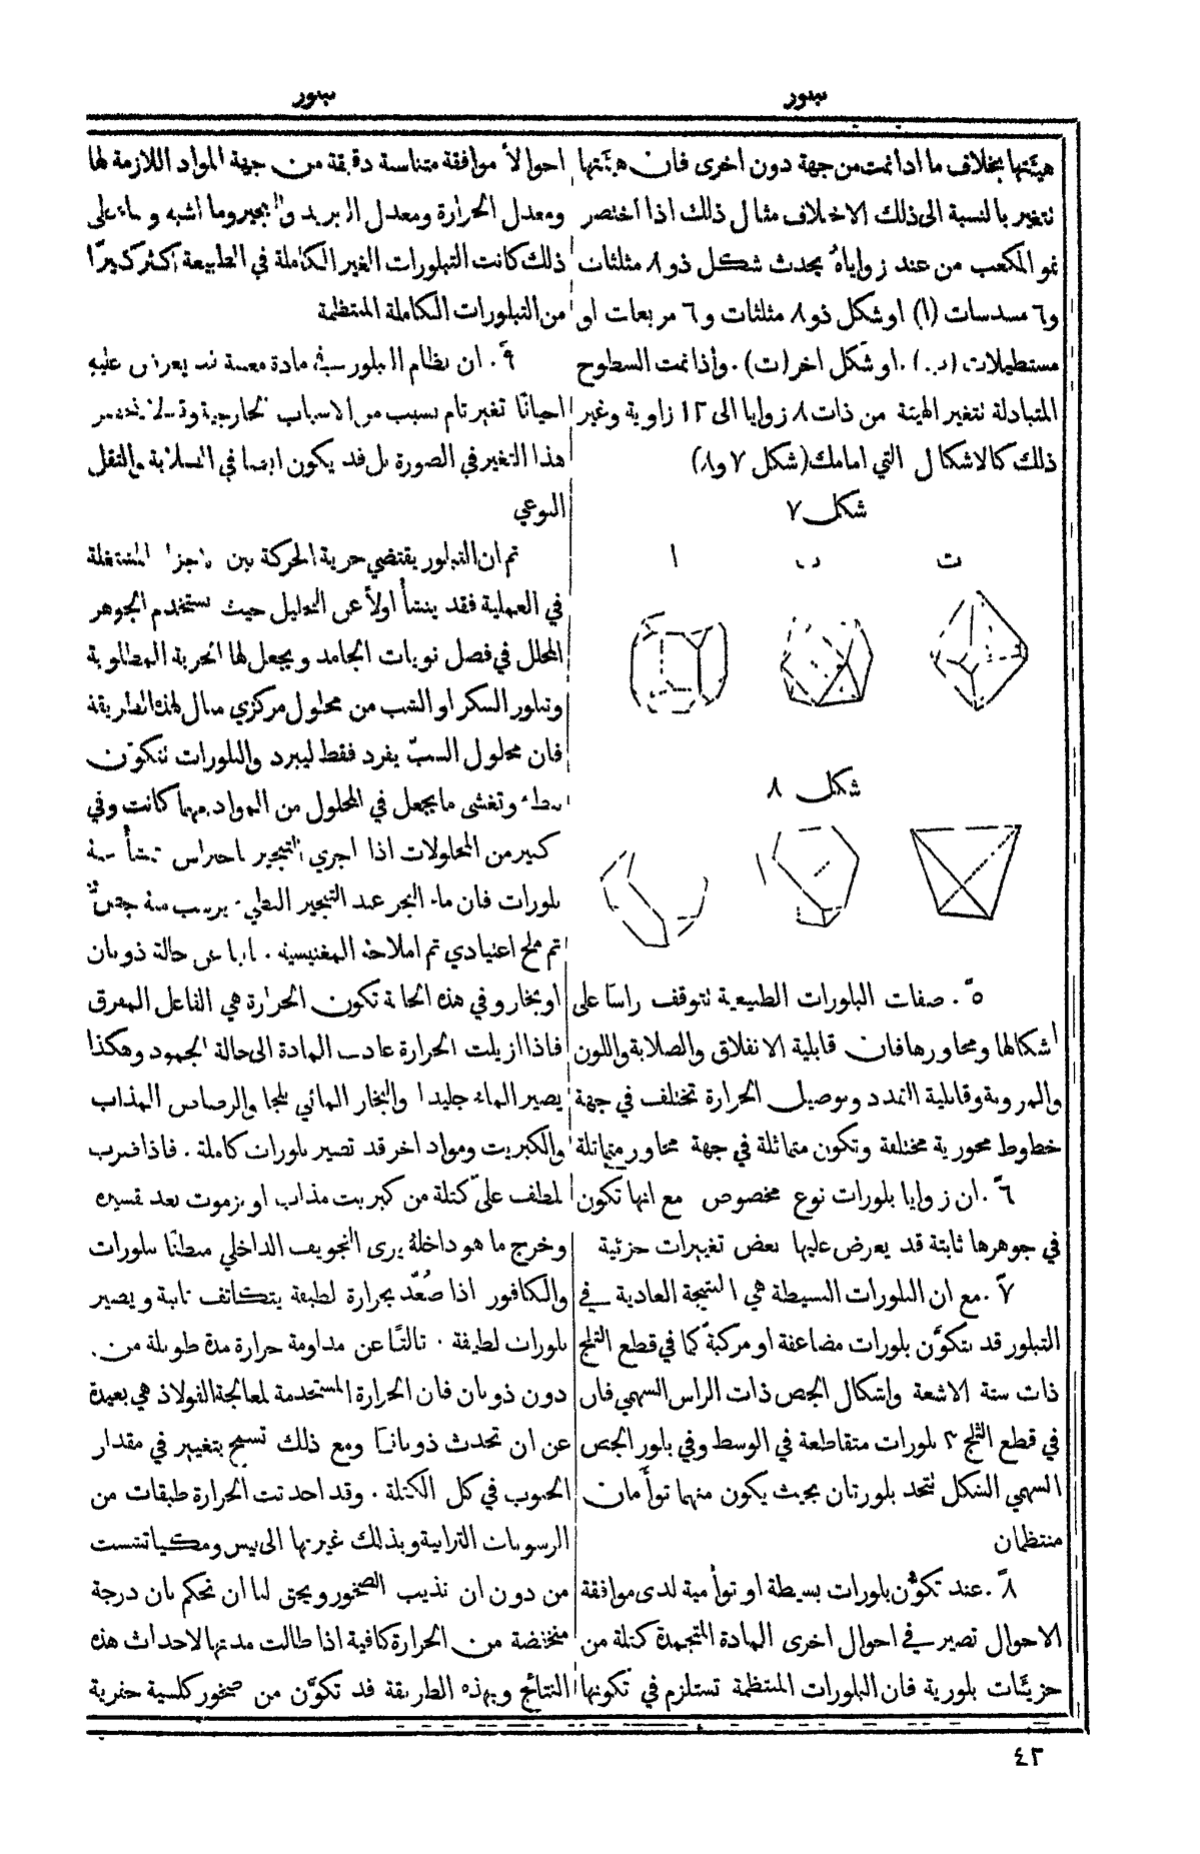 تبلور
تبلور
هيئتها بخلاف ما اذا نمت من جهة دون اخرى فان هيئتها
تتغير بالنسبة الى ذلك الاختلاف مثال ذلك اذا اختصر
نمو المكعب من عند زواياهُ يحدث شكل ذو ٨ مثلثات
و٦ مسدسات (ا) او شكل ذو ٨ مثلثات و٦ مربعات او
مستطيلات (ب) . او شكل اخر (ت) . واذا نمت السطوح
المتبادلة تتغير الهيئة من ذات ٨ زوايا الى ١٢ زاوية وغير
ذلك كالاشكال التي امامك (شكل ٧ و٨)
شكل ٧
ت ب ا
شكل ٨
٥ً . صفات البلورات الطبيعية تتوقف راسًا على
اشكالها ومحاورها فان قابلية الانفلاق والصلابة واللون
والمرونة وقابلية التمدد وتوصيل الحرارة تختلف في جهة
خطوط محورية مختلفة وتكون متماثلة في جهة محاور متماثلة
٦ً . ان زوايا بلورات نوع مخصوص مع انها تكون
في جوهرها ثابتة قد يعرض عليها بعض تغييرات جزئية
٧ً . مع ان البلورات البسيطة هي النتيجة العادية في
التبلور قد يتكوَّن بلورات مضاعفة او مركبة كما في قطع الثلج
ذات ستة الاشعة واشكال الجص ذات الراس السهمي فان
في قطع الثلج ٣ بلورات متقاطعة في الوسط وفي بلور الجص
السهمي الشكل تتحد بلورتان بحيث يكون منهما توأمان
منتظمان
٨ً . عند تكوُّن بلورات بسيطة او توأمية لدى موافقة
الاحوال تصير في احوال اخرى المادة المتجمدة كتلة من
جزيئات بلورية فان البلورات المنتظمة تستلزم في تكونها
احوالاً موافقة متناسبة دقيقة من جهة المواد اللازمة لها
ومعدل الحرارة ومعدل التبريد والتبخير وما اشبه وبناء على
ذلك كانت التبلورات الغير الكاملة في الطبيعة اكثر كثيرًا
من التبلورات الكاملة المنتظمة
٩ً . ان نظام التبلور في مادة معينة قد يعرض عليهِ
احيانًا تغير تام بسبب من الاسباب الخارجية وقد لا ينحصر
هذا التغير في الصورة بل قد يكون ايضا في الصلابة والثقل
النوعي
ثم ان التبلور يقتضي حرية الحركة بين الاجزاء المشتغلة
في العملية فقد ينشأ اولاً عن التحليل حيث يستخدم الجوهر
المحلل في فصل نويات الجامد ويجعل لها الحرية المطلوبة
وتبلور السكر او الشب من محلول مركزي مثال لهذه الطريقة
فان محلول الشبّ يفرد فقط ليبرد والبلورات تتكوَّن
ببطء وتغشى ما يجعل في المحلول من المواد مهما كانت وفي
كثير من المحلولات اذا اجري التبخير باحتراس تنشأ منه
بلورات فان ماء البحر عند التبخير البطيء يرسب منه جص
ثم ملح اعتيادي ثم املاحهُ المغنيسيه . ثانيا عن حالة ذوبان
او بخار وفي هذه الحالة تكون الحرارة هي الفاعل المفرق
فاذا ازيلت الحرارة عادت المادة الى حالة الجمود وهكذا
يصير الماء جليدا والبخار المائي ثلجا والرصاص المذاب
والكبريت ومواد اخر قد تصير بلورات كاملة . فاذا ضرب
بلطف على كتلة من كبريت مذاب او بزموت بعد قسيره
وخرج ما هو داخلهُ يرى التجويف الداخلي مبطنًا ببلورات
والكافور اذا صُعّد بحرارة لطيفة يتكاثف ثانية ويصير
بلورات لطيفة . ثالثًا عن مداومة حرارة مدة طويلة من
دون ذوبان فان الحرارة المستخدمة لمعالجة الفولاذ هي بعيدة
عن ان تحدث ذوبانا ومع ذلك تسمح بتغيير في مقدار
الحبوب في كل الكتلة . وقد احدثت الحرارة طبقات من
الرسوبات الترابية وبذلك غيرتها الى نيس وميكياتشست
من دون ان تذيب الصخور ويحق لنا ان نحكم بان درجة
منخفضة من الحرارة كافية اذا طالت مدتها لاحداث هذه
النتائج وبهذه الطريقة قد تكوَّن من صخور كلسية حفرية
٤٣